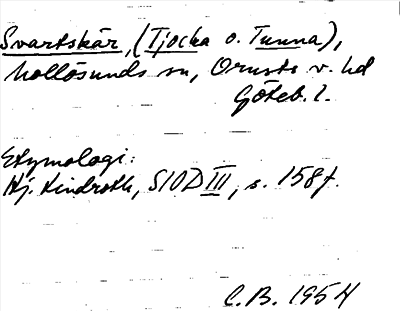 Svartskär, (Tjocka o. Tunna),
Mollösunds sn, Orusts v. hd
Göteb. l.
Etymologi:
Hj. Lindroth, SIOD III, s. 158f.
C.B. 1954